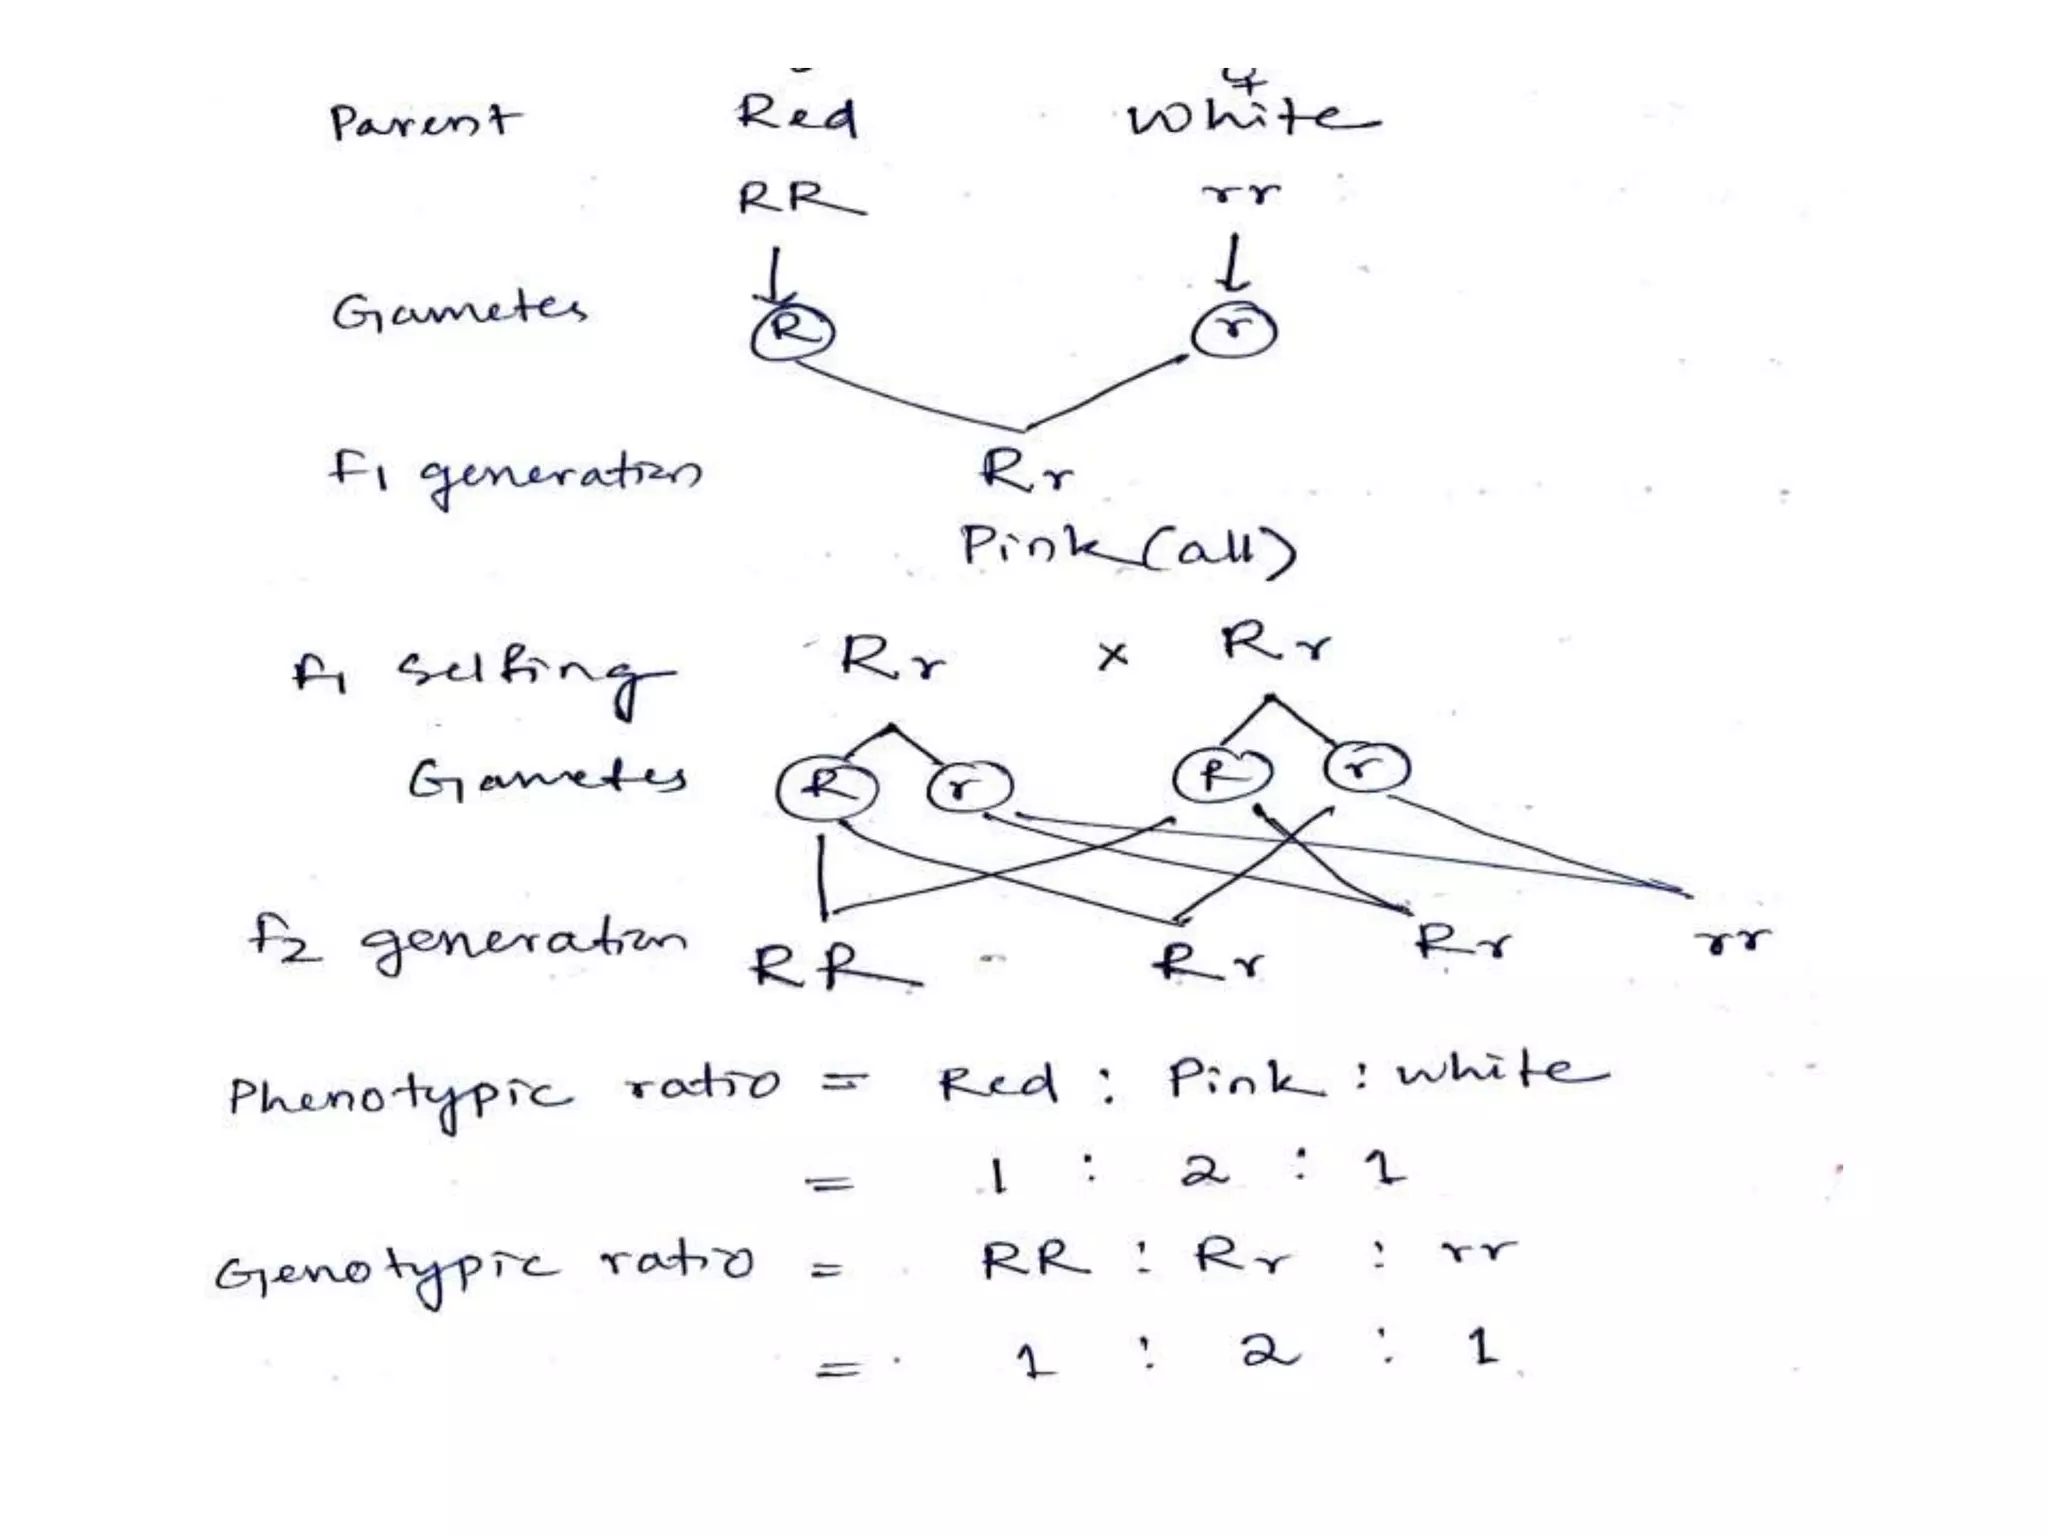 ♀
Parent Red White
RR rr
Gametes R r
F1 generation Rr
Pink (all)
F1 Selfing Rr × Rr
Gametes R r R r
F2 generation RR Rr Rr rr
Phenotypic ratio = Red : Pink : white
= 1 : 2 : 1
Genotypic ratio = RR : Rr : rr
= 1 : 2 : 1